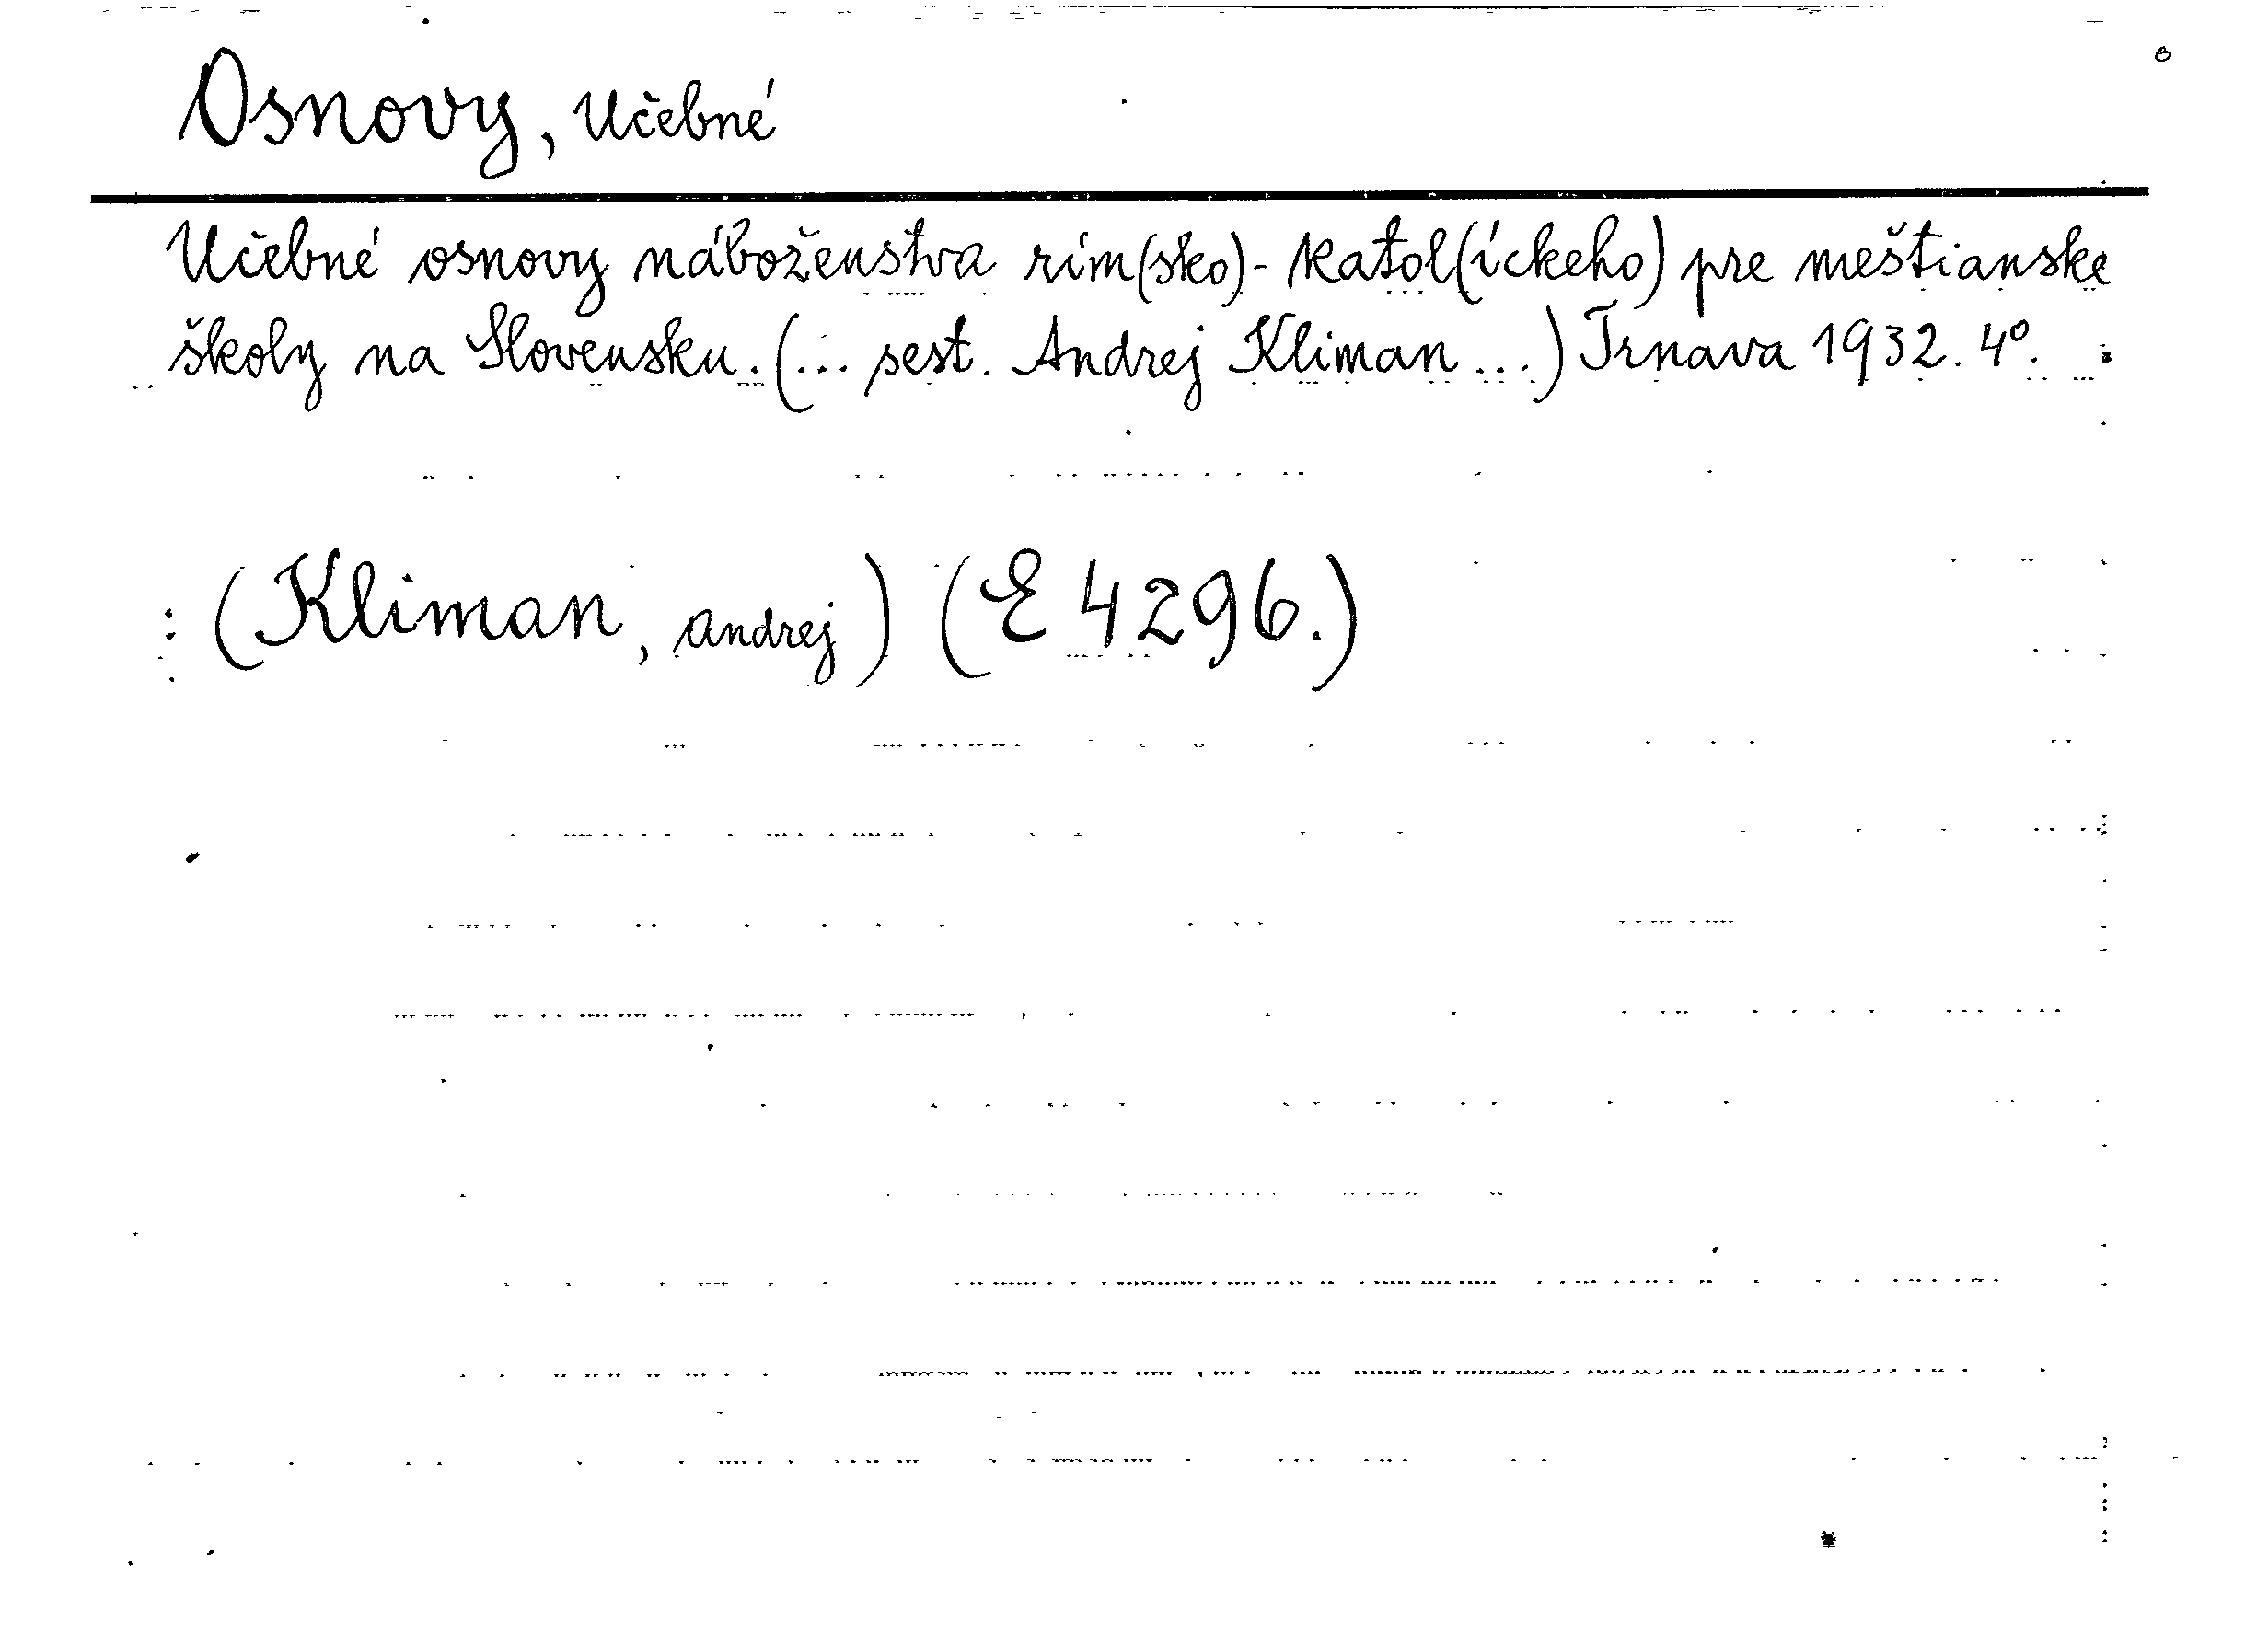 Osnovy, Učebné
Učebné osnovy náboženstva rím(sko)-katol(íckeho) pre meštianske
školy na Slovensku. (... sest. Andrej Kliman ...) Trnava 1932. 4°.
: (Kliman, Andrej) (E 4296.)